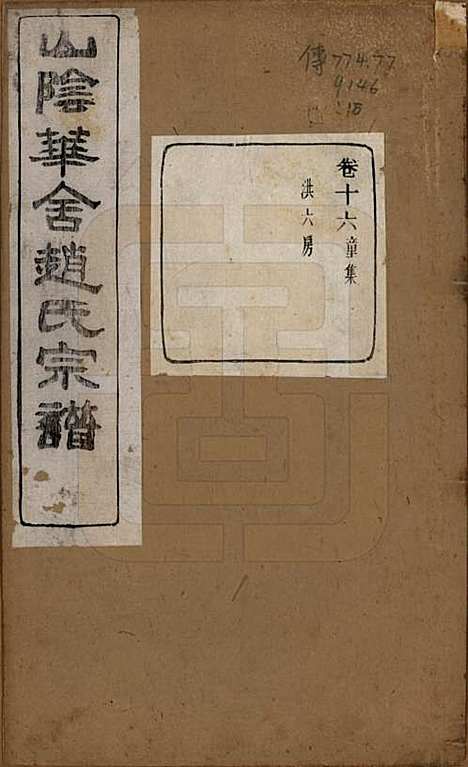 山陰華舍趙氏宗譜
卷十六童集
洪六房
傳774.77
9146
:18